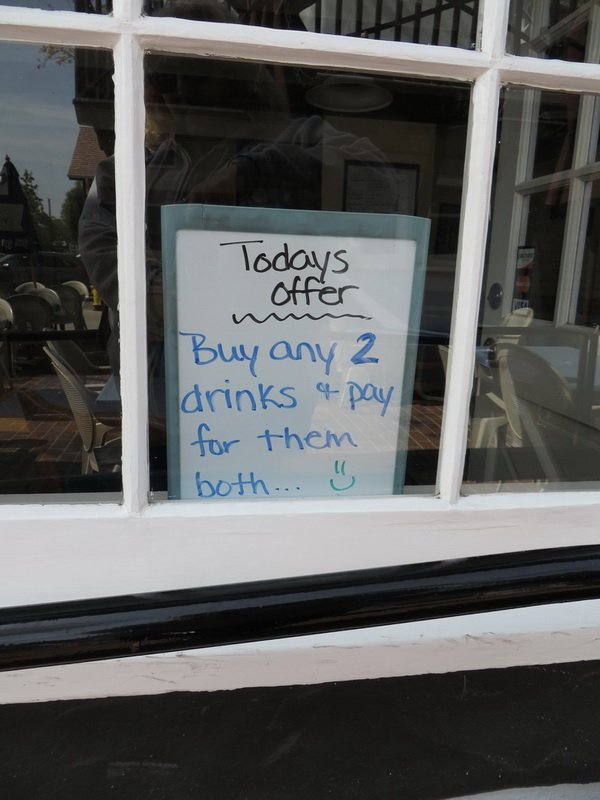 Todays
offer
Buy any 2
drinks & pay
for them
both...
VISA